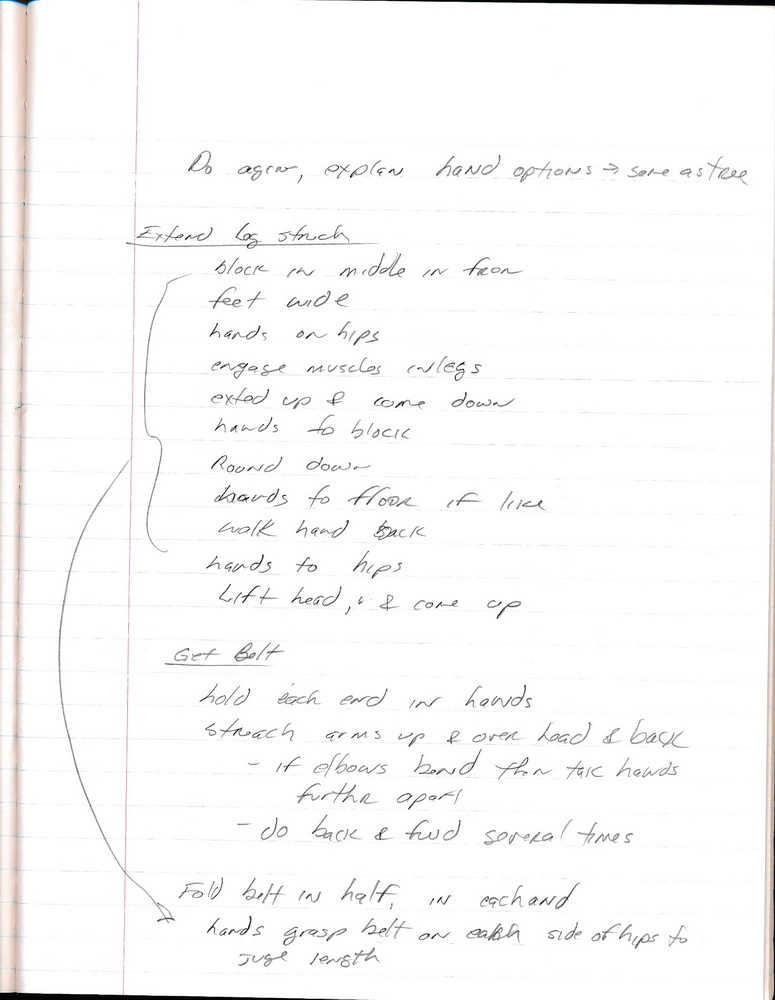 Do again, explan hand options → same as tree
Extend Leg strech
block in middle in fron
feet wide
hands on hips
engage muscles in legs
exted up & come down
hands to block
Round down
hands to floor if like
walk hand back
hands to hips
Lift head, & come up
Get Belt
hold each end in hands
streach arms up & over head & back
- if elbows bend then take hands
furthe apart
- do back & fwd several times
Fold belt in half, in eachand
hands grasp belt on each side of hips to
juge length